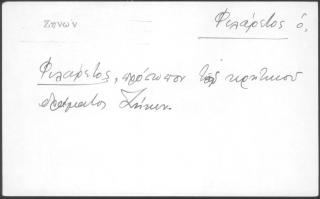 Ζήνων
Φιλάρετος ὁ,
Φιλάρετος, πρόσωπον τοῦ κρητικοῦ
δράματος Ζήνων.